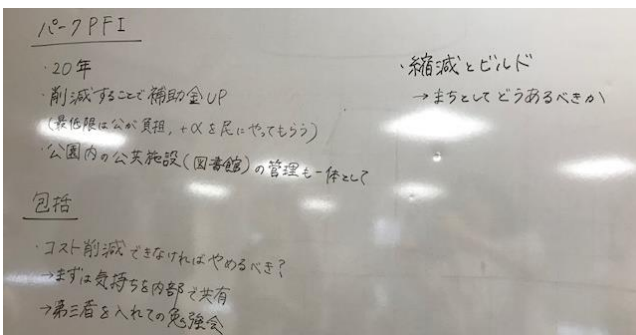 パークPFI
・20年
・削減することで補助金UP
(最低限は公が負担、+αを民にやってもらう)
・公園内の公共施設(図書館)の管理も一体として
包括
・コスト削減できなければやめるべき?
→まずは気持ちを内部で共有
→第三者を入れての勉強会
・縮減とビルド
→まちとしてどうあるべきか